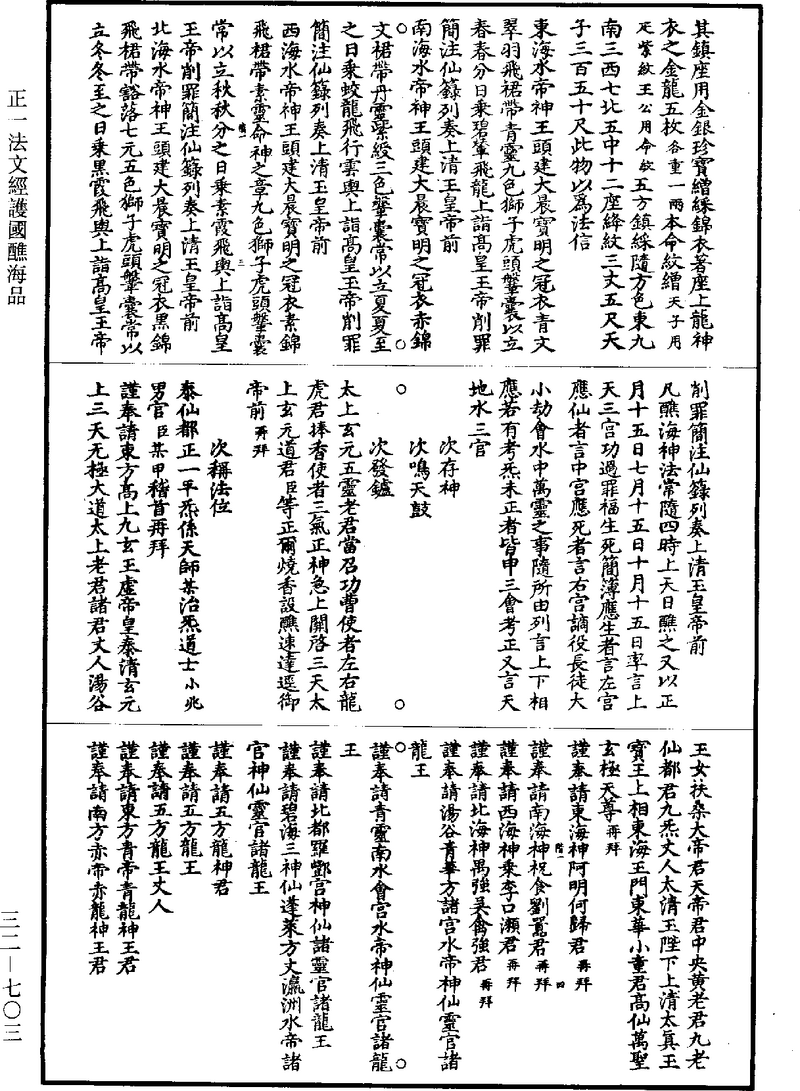 其鎮座用金銀珍寶繒綵錦衣著座上龍神
衣之金龍五枚各重一兩本命紋繒天子用
疋紫紋王公用命紋五方鎮綵隨方色東九
南三西七北五中十二座絳紋三丈五尺天
子三百五十尺此物以爲法信
東海水帝神王頭建大晨寶明之冠衣青文
翠羽飛裙帶青靈九色獅子虎頭鞶囊以立
春春分日乘碧輦飛龍上詣高皇玉帝削罪
簡注仙籙列奏上清玉皇帝前
南海水帝神王頭建大晨寶明之冠衣赤錦
文裙帶丹靈紫綬三色鞶囊常以立夏夏至
之日乘蛟龍飛行雲輿上詣高皇玉帝削罪
簡注仙籙列奏上清玉皇帝前
西海水帝神王頭建大晨寶明之冠衣素錦
飛裙帶素靈命神之章九色獅子虎頭鞶囊
常以立秋秋分之日乘素霞飛輿上詣高皇
玉帝削罪簡注仙籙列奏上清玉皇帝前
北海水帝神王頭建大晨寶明之冠衣黑錦
飛裙帶豁落七元五色獅子虎頭鞶囊常以
立冬冬至之日乘黑霞飛輿上詣高皇玉帝
削罪簡注仙籙列奏上清玉皇帝前
凡醮海神法常隨四時上天日醮之又以正
月十五日七月十五日十月十五日奉言上
天三宮功過罪福生死簡薄應生者言左宮
應仙者言中宮應死者言右宮謫役長徒大
小劫會水中萬靈之事隨所由列言上下相
應若有考炁未正者皆申三會考正又言天
地水三官
次存神
次鳴天鼓
次發鑪
太上玄元五靈老君當召功曹使者左右龍
虎君捧香使者三氣正神急上開啓三天太
上玄元道君臣等正爾燒香設醮速達逕御
帝前再拜
次稱法位
泰仙都正一平炁係天師某治炁道士小兆
男官臣某甲稽首再拜
謹奉請東方高上九玄王虛帝皇泰清玄元
上三天无極大道太上老君諸君丈人湯谷
王女扶桑大帝君天帝君中央黄老君九老
仙都君九炁丈人太清玉陛下上清太眞王
寶王上相東海玉門東華小童君高仙萬聖
玄極天尊再拜
謹奉請東海神阿明何歸君再拜
謹奉請南海神祝食劉𦋺君再拜
謹奉請西海神乘李口瀬君再拜
謹奉請北海神禺強吳禽強君再拜
謹奉請湯谷青華方諸宮水帝神仙靈官諸
龍王
謹奉請青靈南水會宮水帝神仙靈官諸龍
王
謹奉請北都羅酆宮神仙諸靈官諸龍王
謹奉請碧海三神仙蓬萊方丈瀛洲水帝諸
官神仙靈官諸龍王
謹奉請五方龍神君
謹奉請五方龍王
謹奉請五方龍王丈人
謹奉請東方青帝青龍神王君
謹奉請南方赤帝赤龍神王君
正一法文經護國醮海品
三二—七〇三